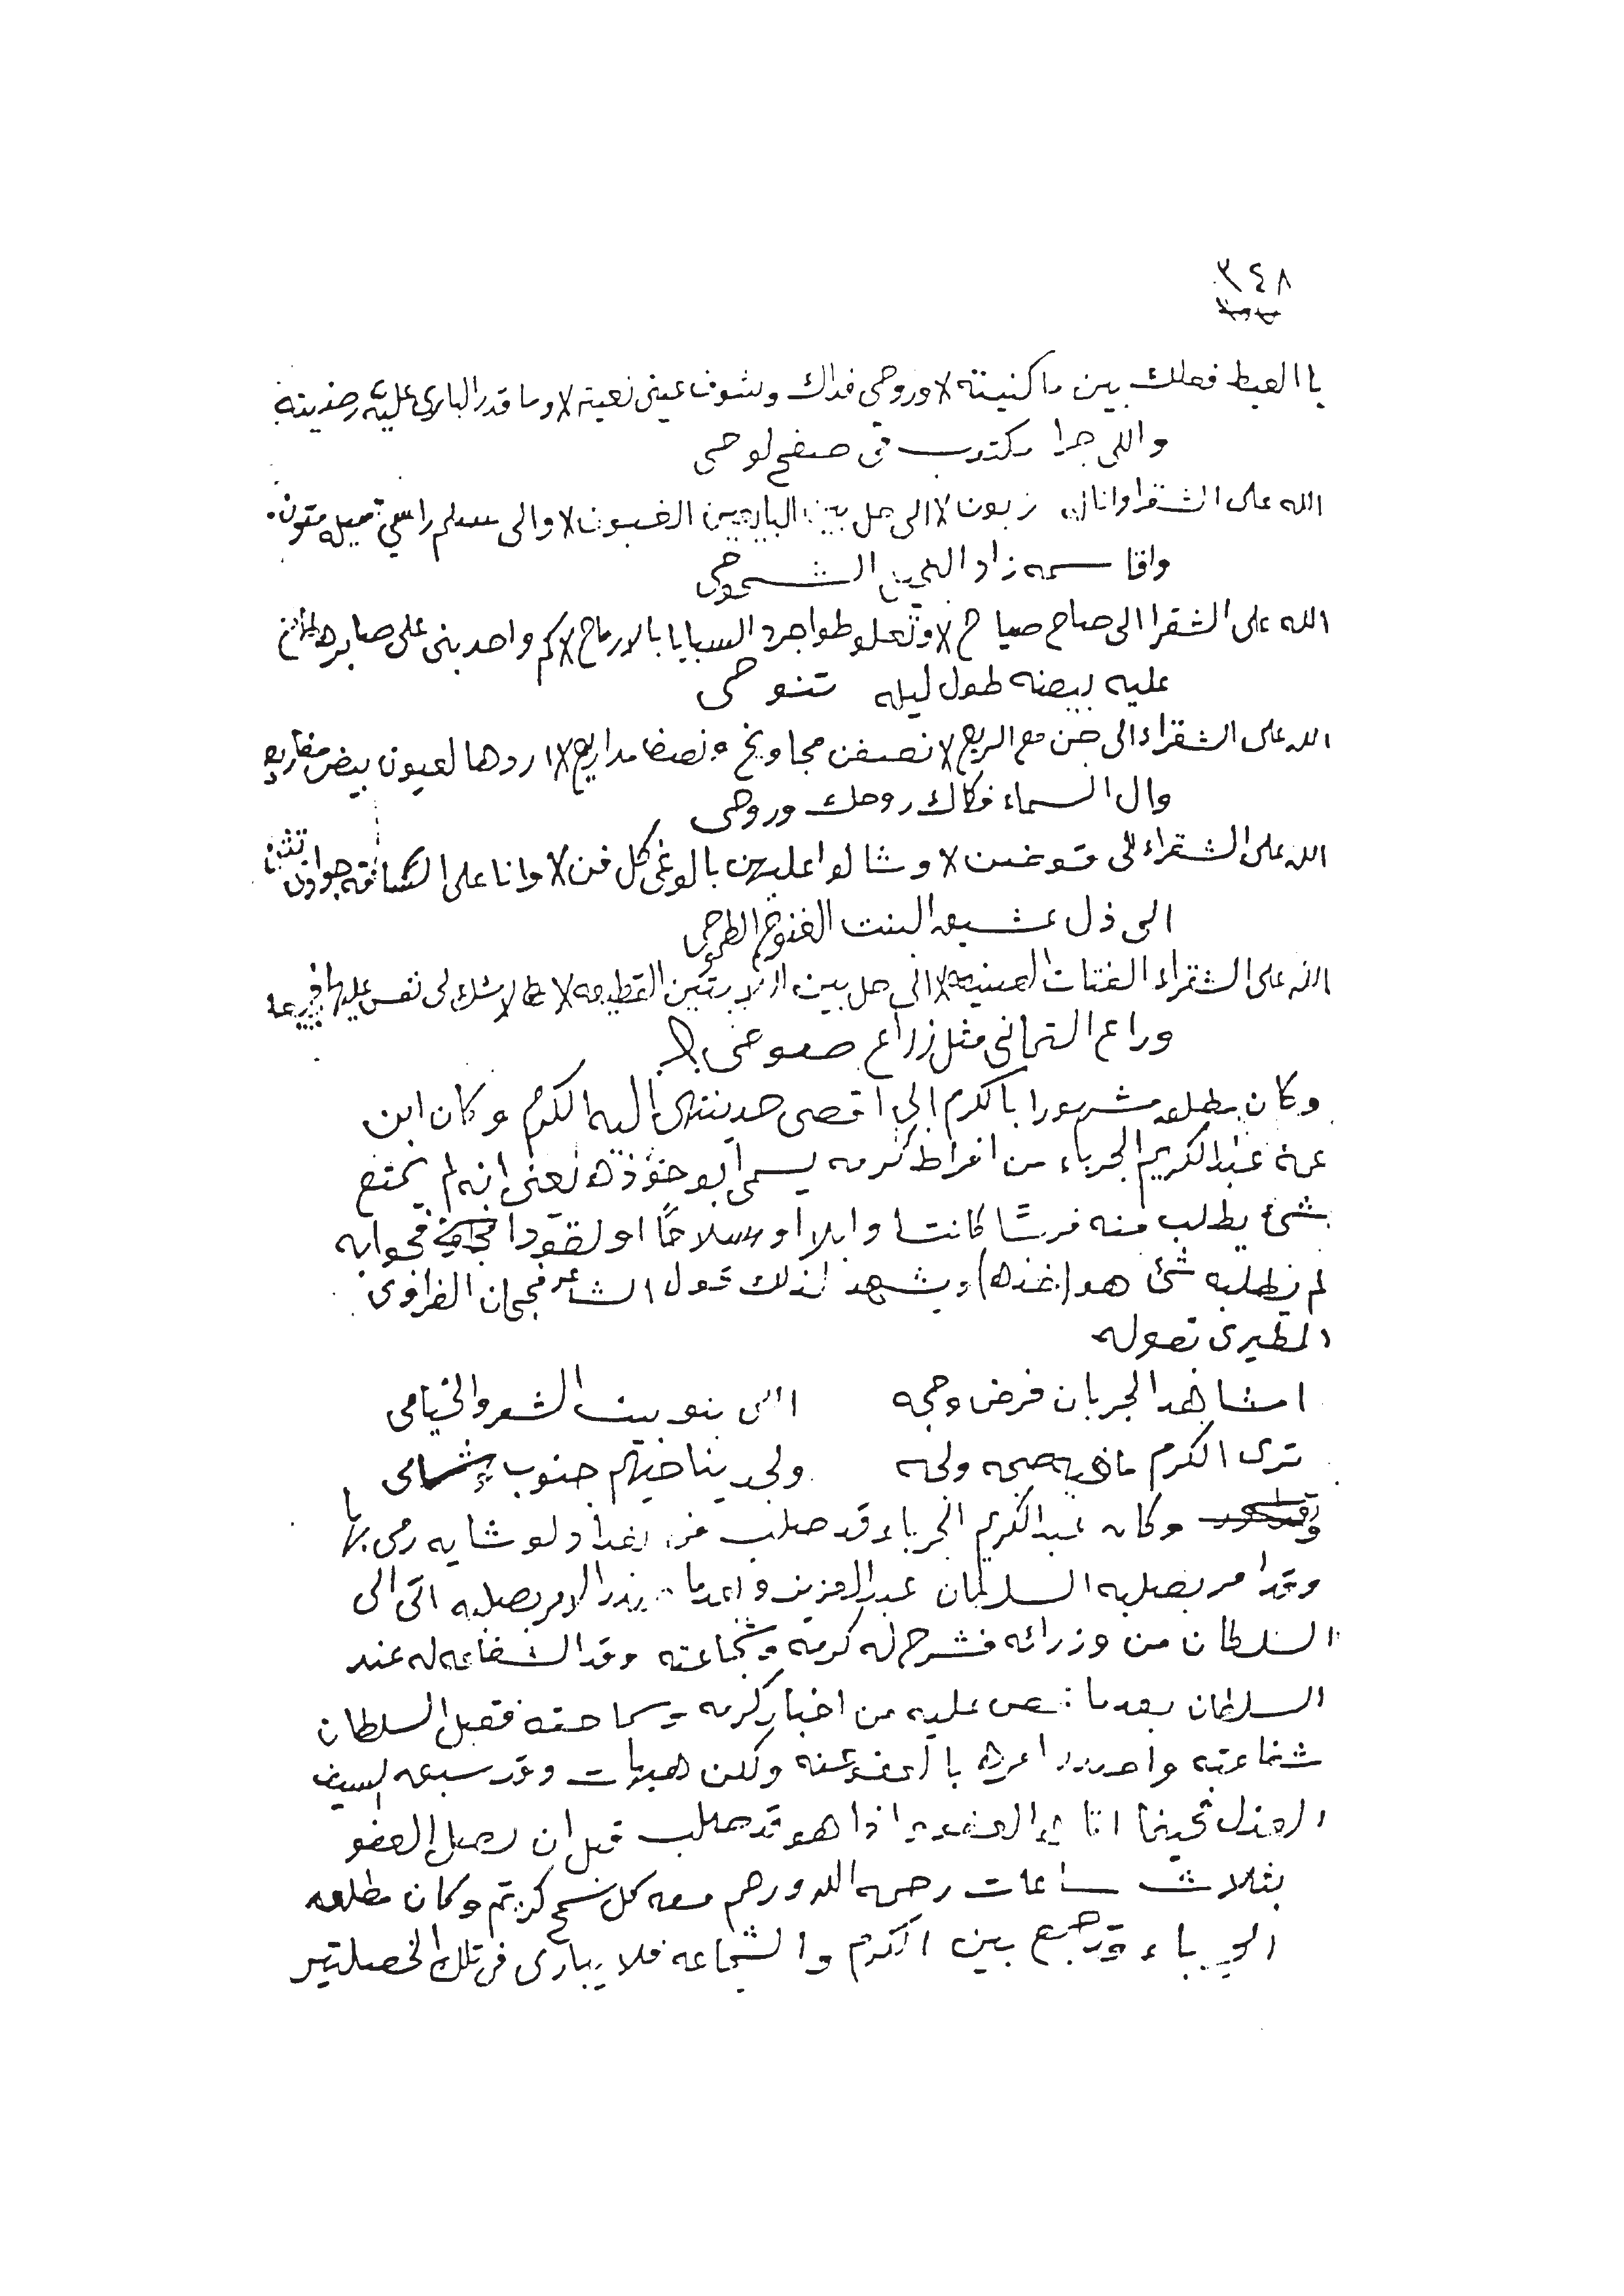 ٣٤٨
يا العبط فعلك بين ما كنيته لا وروحي فداك وشوف عيني نعيته لا وما قدر الباري عليه رضيته
واللي جرا مكتوب في صفح لوحي
الله على الشقرا وانا زبون لا الى حل بين الغبون لا والى سلم راسي متون
واقا سمه زاد الشحوحي
الله على الشقرا الى صاح صياح لا وتعلوطوا جرد السبايا بالارماح لا كم واحد بني على صابره طاح
عليه بيضه طول ليله تنوحي
الله على الشقراء الى جن مع الريع لا نصفن مجاويخ ونصفا مداريع لا اردها لعيون بيض مفاريع
وال السماء فكاك روحك وروحي
الله على الشقراء الى لا وشالوا عليهن بالوغى كل فن لا وانا على جوادن تثنى
الى ذل عشيق البنت الغنوج الطموحي
الله على الشقراء الفتات لا الى حل بين القطيعه لا
وراع التماني مثل زراع صوعي لا
وكان مطلق مشهورا بالكرم الى اقصى حد ينتهى اليه الكرم وكان ابن
عمه عبدالكريم الجرباء من افراط كرمه يسمى ابو خوذه يعني انه لم يمتنع
بشئ يطلب منه فرسًا كانت او ابلا او سلاحًا او نقودا فجوابه
لم يطلبه شئ هو (خذه) ويشهد لذلك قول الشاعر فجحان الفراوي
المطيري بقوله
امشاهد الجربان فرض وحجه الى بنو بيت الشعر والخيامي
ترى الكرم ما فيه صجه ولجه ولجد يناخيهم جنوب وشامي
وكان عبدالكريم الجرباء قد صلب في بغداد لوشايه رمي بها
وقد امر بصلبه السلطان عبدالعزيز وبعدما الامر بصلبه اتى الى
السلطان من وزرائه فشرح له كرمه وشجاعته وقد الشفاعه له عند
السلطان بعدما قص عليه من اخبار كرمه وسماحته فقبل السلطان
شفاعته واصدر امره بالعفو عنه ولكن هيهات وقد سبق السيف
العذل فحينما اتا العفو اذا هو قد صلب قبل ان يصل العفو
بثلاث ساعات رحمه الله ورحم معه كل سمح كريم وكان مطلق
الجرباء قد جمع بين الكرم والشجاعه فلا يبارى في تلك الخصلتين